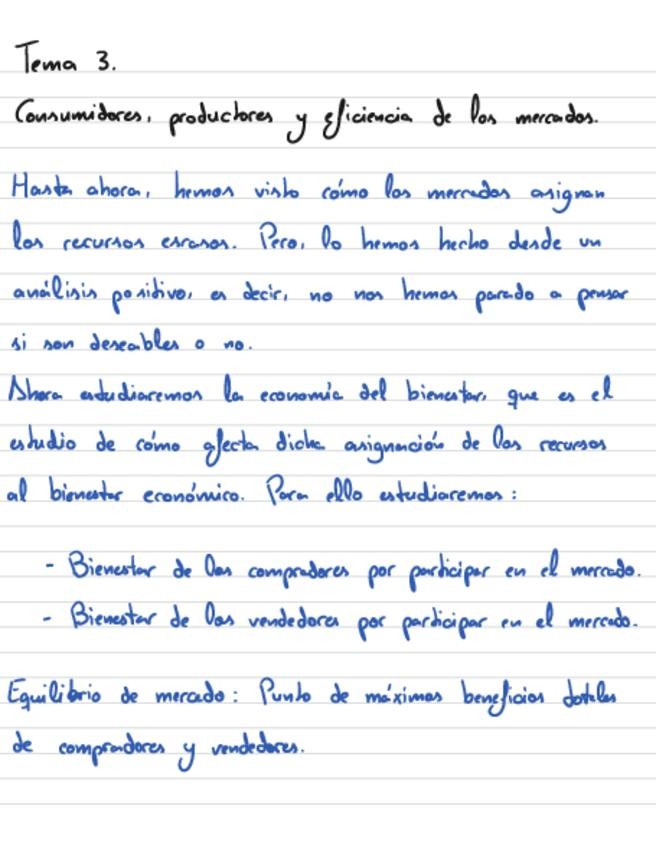 Tema 3.
Consumidores, productores y eficiencia de los mercados.
Hasta ahora, hemos visto cómo los mercados asignan
los recursos escasos. Pero, lo hemos hecho desde un
análisis positivo, es decir, no nos hemos parado a pensar
si son deseables o no.
Ahora estudiaremos la economía del bienestar, que es el
estudio de cómo afecta dicha asignación de los recursos
al bienestar económico. Para ello estudiaremos:
- Bienestar de los compradores por participar en el mercado.
- Bienestar de los vendedores por participar en el mercado.
Equilibrio de mercado: Punto de máximos beneficios totales
de compradores y vendedores.